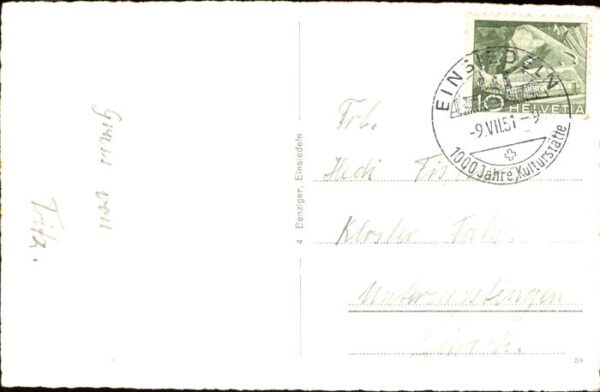 Gruss von
Fritz.
4 Benziger, Einsiedeln
10 HELVETIA
EINSIEDELN
-9.VII.51-9
1000 Jahre Kulturstätte
Frl.
Hedi
Kloster Fahr.
Unterengstringen
Zürich.